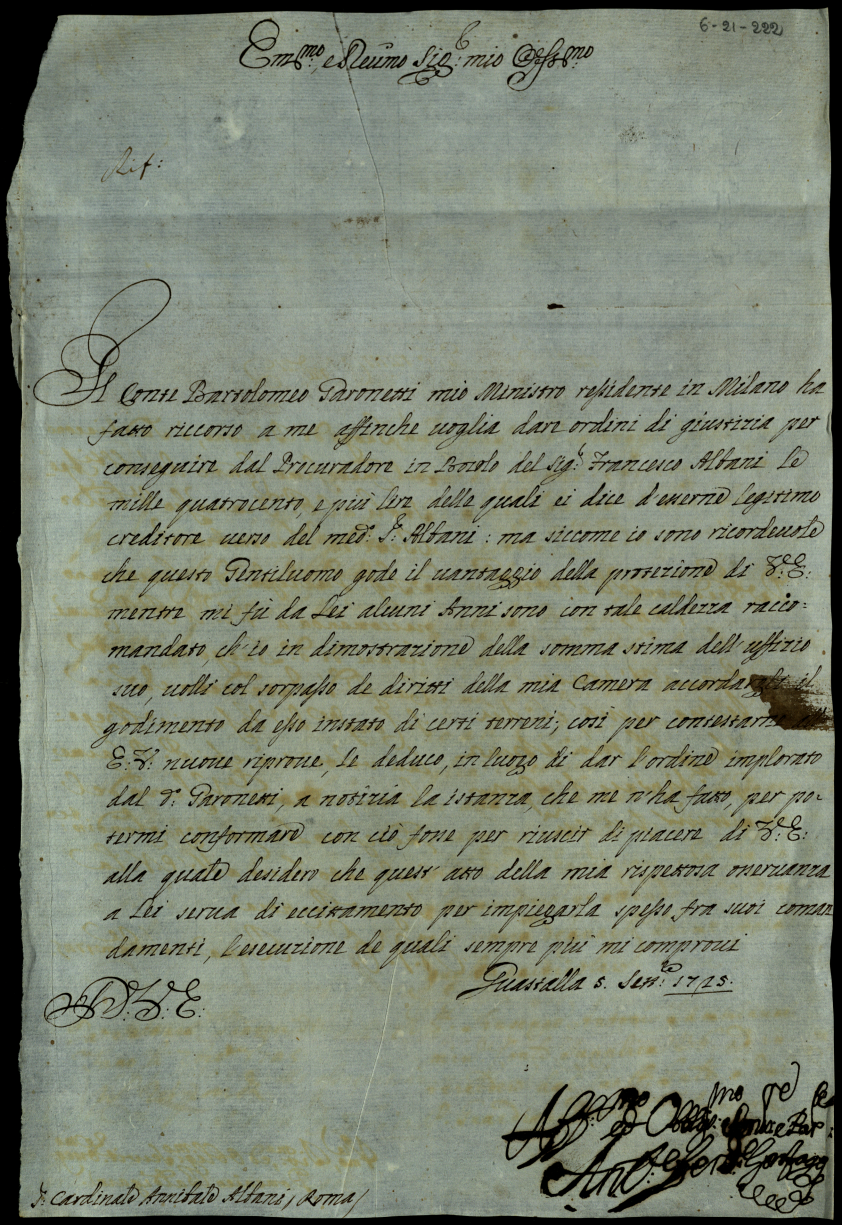 6-21-222
Em.mo e Reumo Sig.r mio Oss.mo
Rif:
Il Conte Bartolomeo Paronetti mio Ministro residente in Milano ha
fatto riccorso a me affinche voglia dare ordini di giustizia per
conseguire dal Procuradore in Bozolo del Sig.r Francesco Albani le
mille quatrocento, e più lire delle quali ei dice d'esserne legitimo
creditore verso del med.o S.r Albani: ma siccome io sono ricordevole
che questo Gentiluomo gode il vantaggio della protezione di V.E:
mentre mi fù da Lei alcuni Anni sono con tale caldezza racco=
mandato, ch'io in dimostrazione della somma stima dell'uffizio
suo, volli col sorpasso de diritti della mia Camera accordargli il
godimento da esso instato di certi terreni; così per contestarne all'
E:V: nuove riprove, Le deduco, in luogo di dar l'ordine implorato
dal d.o Paronetti, a notizia la istanza, che me n'ha fatto, per po-
termi conformare con ciò fosse per riuscir di piacere di V.E:
alla quale desidero che quest'atto della mia rispettosa osservanza
a Lei serva di eccittamento per impiegarla spesso fra suoi coman
damenti, l'esecuzione de quali sempre più mi comprovi
Guastalla 5. Sett.e 1725.
D. V. E.
Aff.mo ed Obblig.mo Ser.e e Par:
Ant. Ferd. Gonzaga
S.r Cardinale Annibale Albani / Roma /